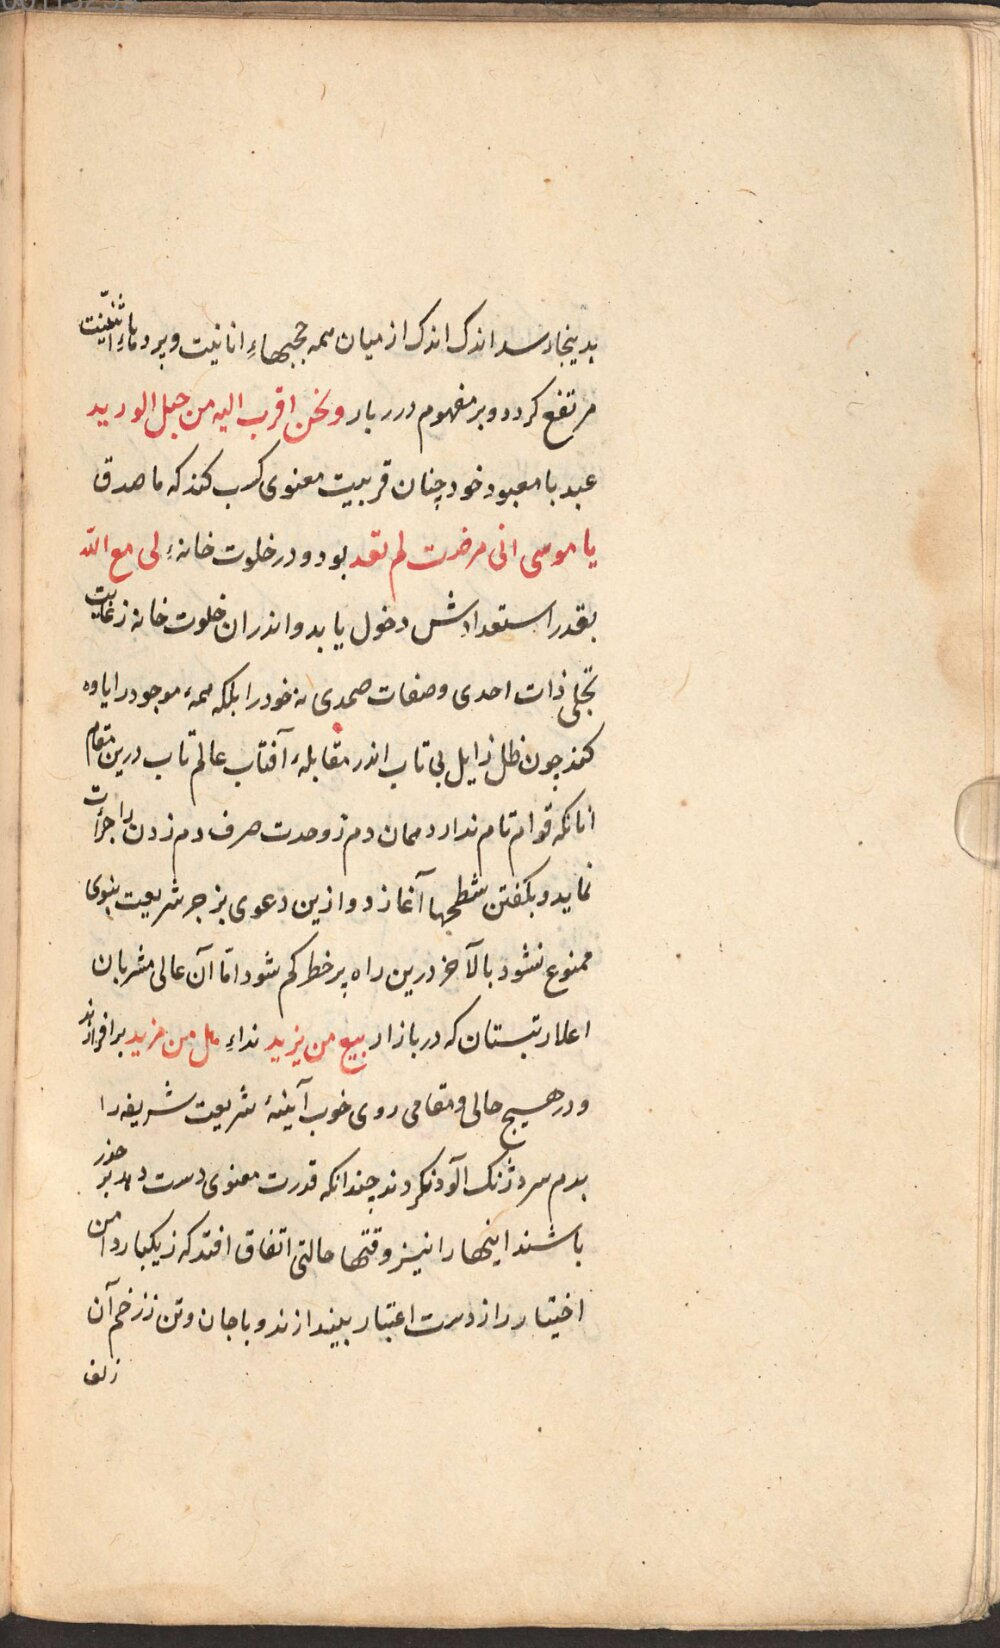 بدینجا رسد اندک اندک از میان همه حجبهاءِ انانیت و پردهاءِ اثنینیّت
مرتفع کردد و بر مفهوم درربار ونحن اقرب الیه من حبل الورید
عبد با معبود خود چنان قربیت معنوی کسب کند که ما صدق
یا موسی انی مرضت لم تعد بود و در خلوت خانهٔ لی مع الله
بقدر استعدادش دخول یابد و اندران خلوت خانه ز غایت
تجلی ذات احدی و صفات صمدی نه خود را بلکه همهٔ موجود را یاوه
کند چون ظل زایل بی تاب اندر مقابلهٔ آفتاب عالم تاب درین مقام
انانکه قوام تام ندارد همان دم ز وحدت صرف دم زدن را جرأت
نماید و بکفتن شطحها آغازد و ازین دعوی بزجر شریعت نبوی
ممنوع نشود بالآخر درین راه پر خطر کم شود امّا آن عالی مشربان
اعلا رتبستان که در بازار بیع من یزید نداءِ هل من مزید برافرازند
و در هیچ حالی و مقامی روی خوب آیینهٔ شریعت شریفه را
بدم سرد ژنک آلود نکردند چندانکه قدرت معنوی دست دهد بر حذر
باشند اینها را نیز وقتها حالتی اتفاق افتد که ز یکبار دامن
اختیار را از دست اعتبار بیندازند و با جان و تن ز زخم آن
زلف